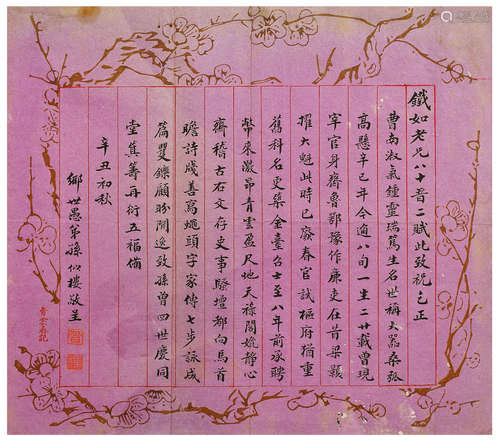 鐵如老兄八十晋二賦此致祝乞正
曹南淑氣鍾靈瑞篤生名世稱大器桑弧
高懸辛巳年今適八旬一生二廿載曾現
宰官身齊魯郡豫作廉吏在首梁縣
擢大魁此時已廢春官試樞府猶重
舊科名更築金臺召士至八年前承聘
幣來激昂青雲盈尺地天祿閣姚靜心
齊稽古右文存史事騷壇都向馬首
瞻詩成善寫蠅頭字家傳七步詠成
篇矍鑠顧盼閒逸致孫曾四世慶同
堂箕籌再衍五福備
辛丑初秋
鄉世愚弟孫似樓敬呈